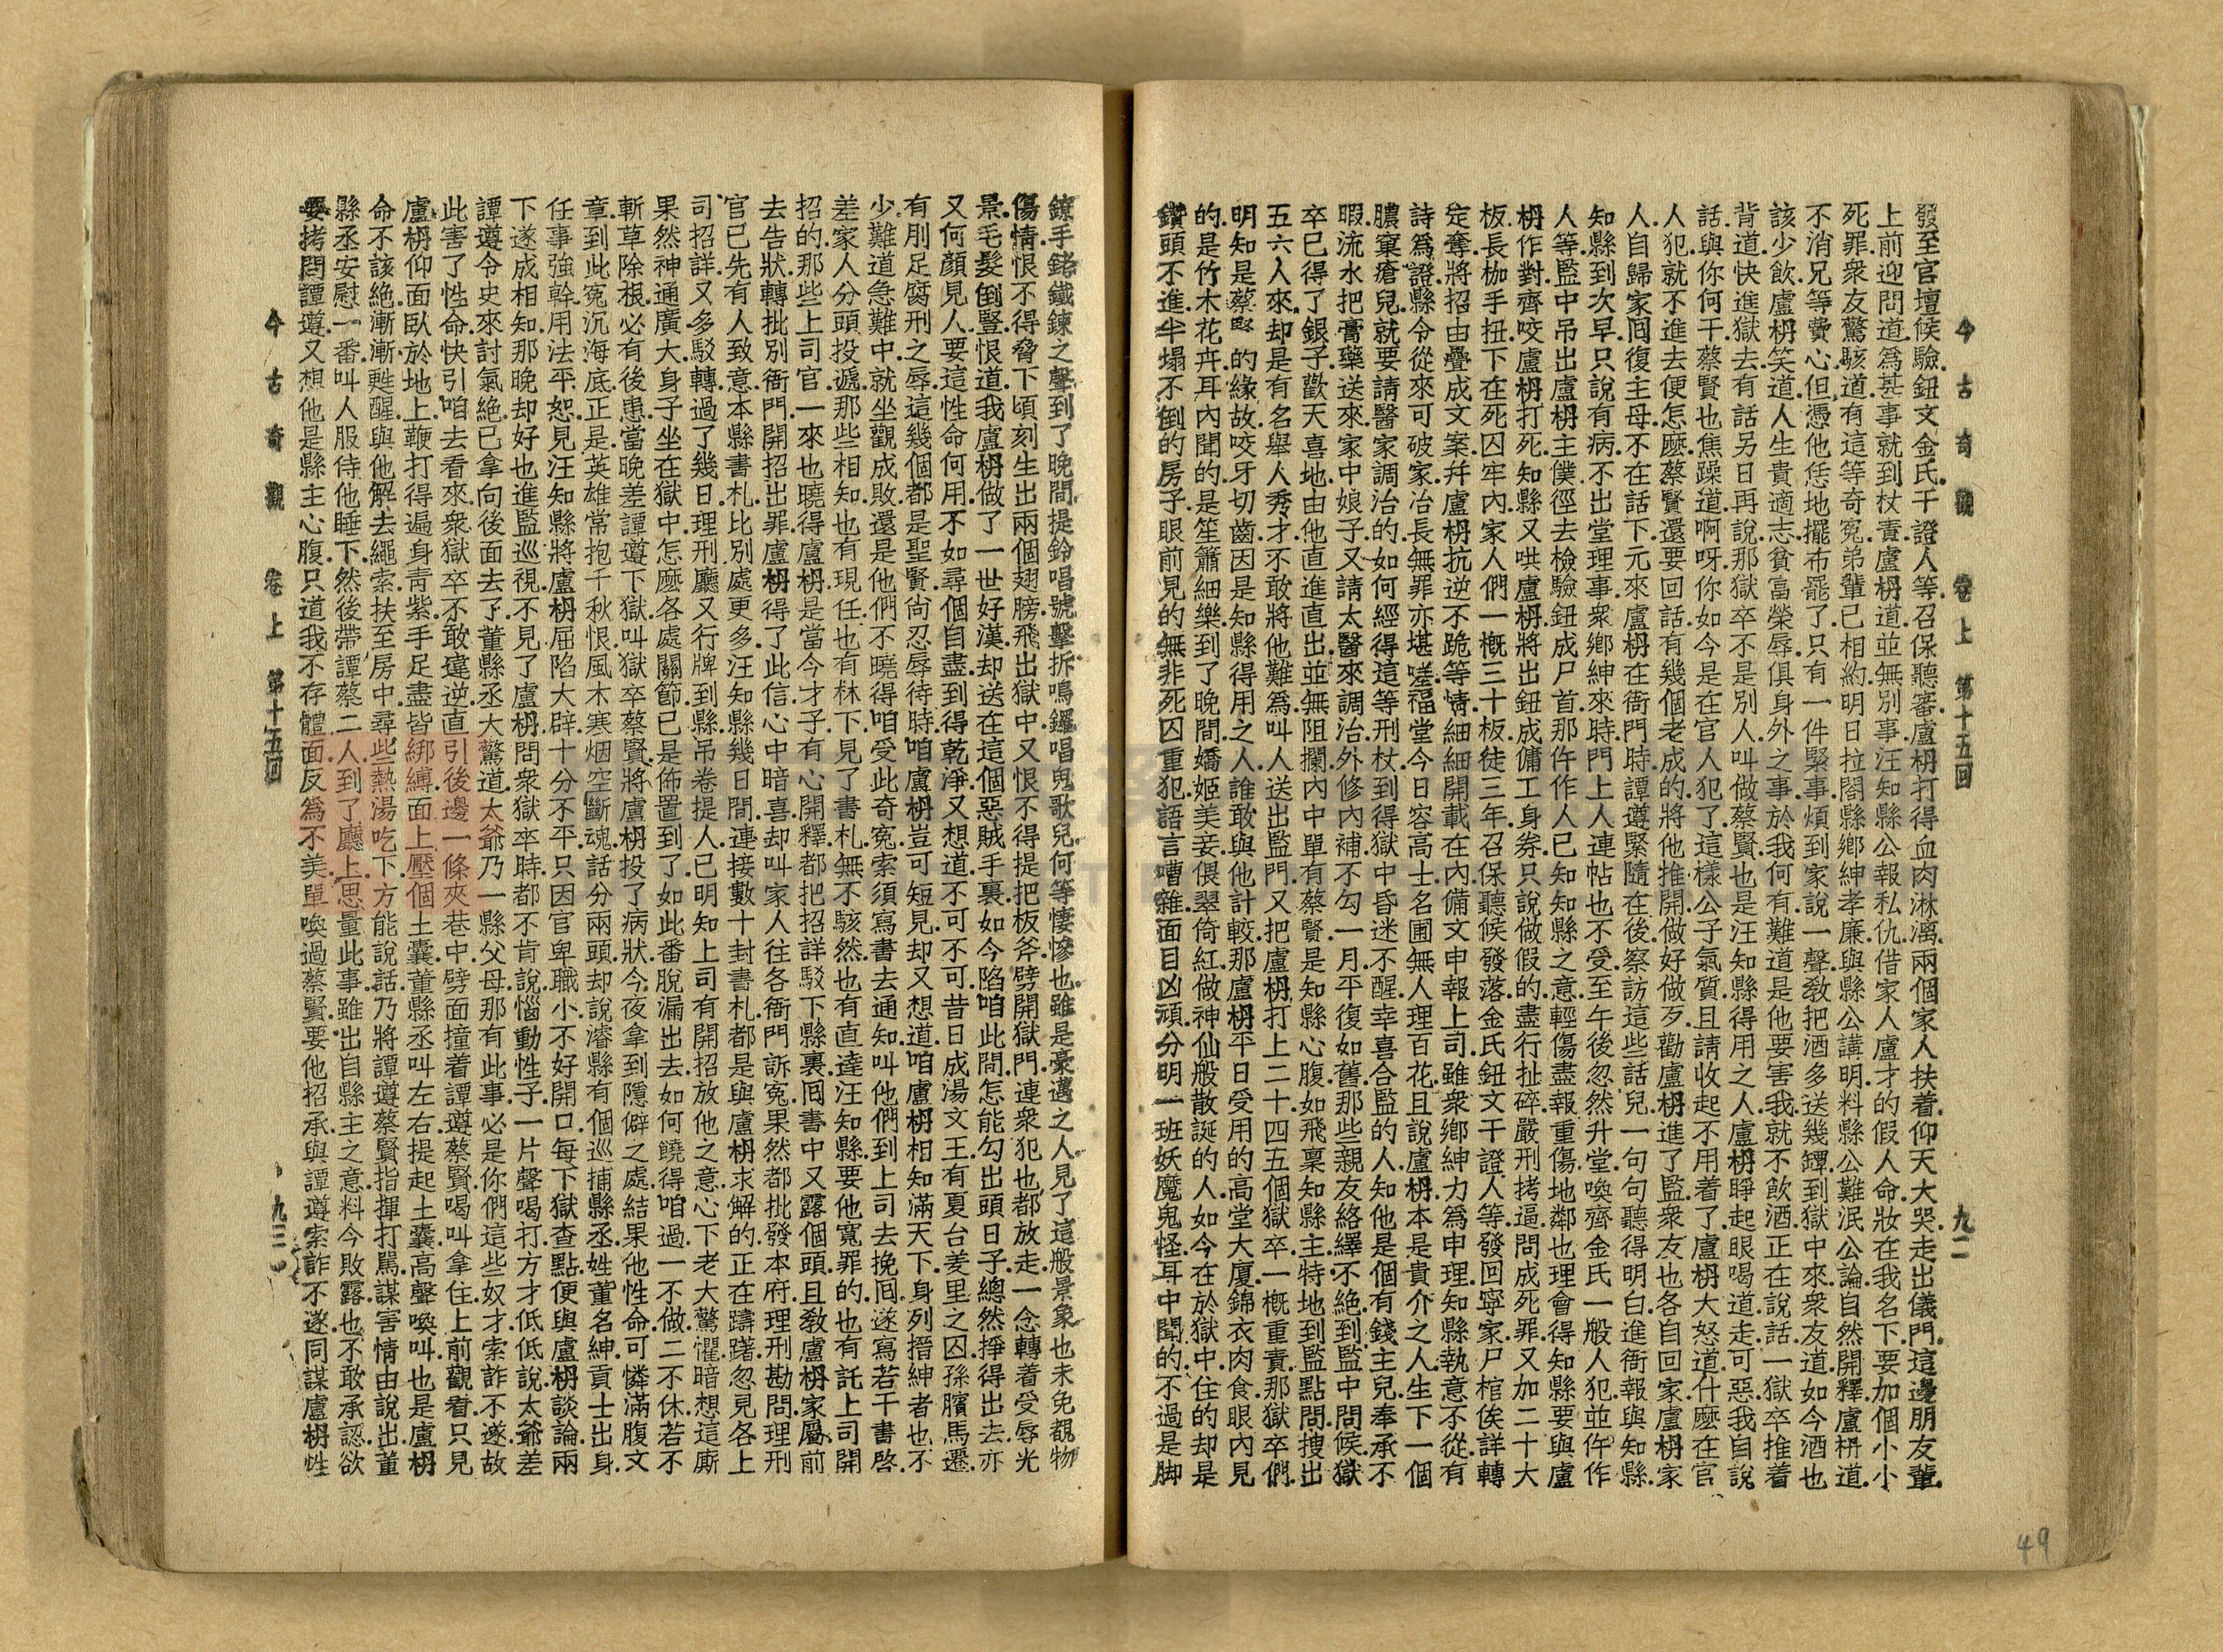 今古奇觀　卷上　第十五回　九二
發至官壇候驗鈕文金氏干證人等召保聽審盧枬打得血肉淋漓兩個家人扶着仰天大哭走出儀門這邊朋友輩
上前迎問道爲甚事就到杖責盧枬道並無別事汪知縣公報私仇借家人盧才的假人命妝在我名下要加個小小
死罪衆友驚駭道有這等奇冤弟輩已相約明日拉閤縣鄕紳孝廉與縣公講明料縣公難泯公論自然開釋盧枬道
不消兄等費心但憑他恁地擺布罷了只有一件緊事煩到家說一聲敎把酒多送幾罈到獄中來衆友道如今酒也
該少飲盧枬笑道人生貴適志貧富榮辱俱身外之事於我何有難道是他要害我就不飲酒正在說話一獄卒推着
背道快進獄去有話另日再說那獄卒不是別人叫做蔡賢也是汪知縣得用之人盧枬睜起眼喝道走可惡我自說
話與你何干蔡賢也焦躁道啊呀你如今是在官人犯了這樣公子氣質且請收起不用着了盧枬大怒道什麼在官
人犯就不進去便怎麼蔡賢還要回話有幾個老成的將他推開做好做歹勸盧枬進了監衆友也各自回家盧枬家
人自歸家囘復主母不在話下元來盧枬在衙門時譚遵緊隨在後察訪這些話兒一句句聽得明白進衙報與知縣
知縣到次早只說有病不出堂理事衆鄕紳來時門上人連帖也不受至午後忽然升堂喚齊金氏一般人犯並仵作
人等監中吊出盧枬主僕徑去檢驗鈕成尸首那仵作人已知知縣之意輕傷盡報重傷地鄰也理會得知縣要與盧
枬作對齊咬盧枬打死知縣又哄盧枬將出鈕成傭工身券只說做假的盡行扯碎嚴刑拷逼問成死罪又加二十大
板長枷手扭下在死囚牢內家人們一槪三十板徒三年召保聽候發落金氏鈕文干證人等發回寧家尸棺俟詳轉
定奪將招由疊成文案幷盧枬抗逆不跪等情細細開載在內備文申報上司雖衆鄕紳力爲申理知縣執意不從有
詩爲證縣令從來可破家冶長無罪亦堪嗟福堂今日容高士名圃無人理百花且說盧枬本是貴介之人生下一個
膿窠瘡兒就要請醫家調治的如何經得這等刑杖到得獄中昏迷不醒幸喜合監的人知他是個有錢主兒奉承不
暇流水把膏藥送來家中娘子又請太醫來調治外修內補不勾一月平復如舊那些親友絡繹不絕到監中問候獄
卒已得了銀子歡天喜地由他直進直出並無阻攔內中單有蔡賢是知縣心腹如飛稟知縣主特地到監點問搜出
五六人來却是有名舉人秀才不敢將他難爲叫人送出監門又把盧枬打上二十四五個獄卒一槪重責那獄卒們
明知是蔡賢的緣故咬牙切齒因是知縣得用之人誰敢與他計較那盧枬平日受用的高堂大廈錦衣肉食眼內見
的是竹木花卉耳內聞的是笙簫細樂到了晚間嬌姬美妾偎翠倚紅做神仙般散誕的人如今在於獄中住的却是
鑽頭不進半塌不倒的房子眼前見的無非死囚重犯語言嘈雜面目凶頑分明一班妖魔鬼怪耳中聞的不過是脚
鐐手銬鐵鍊之聲到了晚間提鈴唱號擊拆鳴鑼唱鬼歌兒何等悽慘也雖是豪邁之人見了這般景象也未免覩物
傷情恨不得脅下頃刻生出兩個翅膀飛出獄中又恨不得提把板斧劈開獄門連衆犯也都放走一念轉着受辱光
景毛髮倒豎恨道我盧枬做了一世好漢却送在這個惡賊手裏如今陷咱此間怎能勾出頭日子總然掙得出去亦
又何顏見人要這性命何用不如尋個自盡到得乾淨又想道不可不可昔日成湯文王有夏台羑里之囚孫臏馬遷
有刖足腐刑之辱這幾個都是聖賢尙忍辱待時咱盧枬豈可短見却又想道咱盧枬相知滿天下身列搢紳者也不
少難道急難中就坐觀成敗還是他們不曉得咱受此奇冤索須寫書去通知叫他們到上司去挽囘遂寫若干書啓
差家人分頭投遞那些相知也有現任也有林下見了書札無不駭然也有直達汪知縣要他寬罪的也有託上司開
招的那些上司官一來也曉得盧枬是當今才子有心開釋都把招詳駁下縣裏囘書中又露個頭且敎盧枬家屬前
去告狀轉批別衙門開招出罪盧枬得了此信心中暗喜却叫家人往各衙門訴冤果然都批發本府理刑勘問理刑
官已先有人致意本縣書札比別處更多汪知縣幾日間連接數十封書札都是與盧枬求解的正在躊躇忽見各上
司招詳又多駁轉過了幾日理刑廳又行牌到縣吊卷提人已明知上司有開招放他之意心下老大驚懼暗想這廝
果然神通廣大身子坐在獄中怎麼各處關節已是佈置到了如此番脫漏出去如何饒得咱過一不做二不休若不
斬草除根必有後患當晚差譚遵下獄叫獄卒蔡賢將盧枬投了病狀今夜拿到隱僻之處結果他性命可憐滿腹文
章到此冤沉海底正是英雄常抱千秋恨風木寒烟空斷魂話分兩頭却說濬縣有個巡捕縣丞姓董名紳貢士出身
任事強幹用法平恕見汪知縣將盧枬屈陷大辟十分不平只因官卑職小不好開口每下獄查點便與盧枬談論兩
下遂成相知那晚却好也進監巡視不見了盧枬問衆獄卒時都不肯說惱動性子一片聲喝打方才低低說太爺差
譚遵令史來討氣絕已拿向後面去了董縣丞大驚道太爺乃一縣父母那有此事必是你們這些奴才索詐不遂故
此害了性命快引咱去看來衆獄卒不敢違逆直引後邊一條夾巷中劈面撞着譚遵蔡賢喝叫拿住上前觀看只見
盧枬仰面臥於地上鞭打得遍身靑紫手足盡皆綁縛面上壓個土囊董縣丞叫左右提起土囊高聲喚叫也是盧枬
命不該絕漸漸甦醒與他解去繩索扶至房中尋些熱湯吃下方能說話乃將譚遵蔡賢指揮打駡謀害情由說出董
縣丞安慰一番叫人服侍他睡下然後帶譚蔡二人到了廳上思量此事雖出自縣主之意料今敗露也不敢承認欲
要拷問譚遵又想他是縣主心腹只道我不存體面反爲不美單喚過蔡賢要他招承與譚遵索詐不遂同謀盧枬性
今古奇觀　卷上　第十五回　九三
49